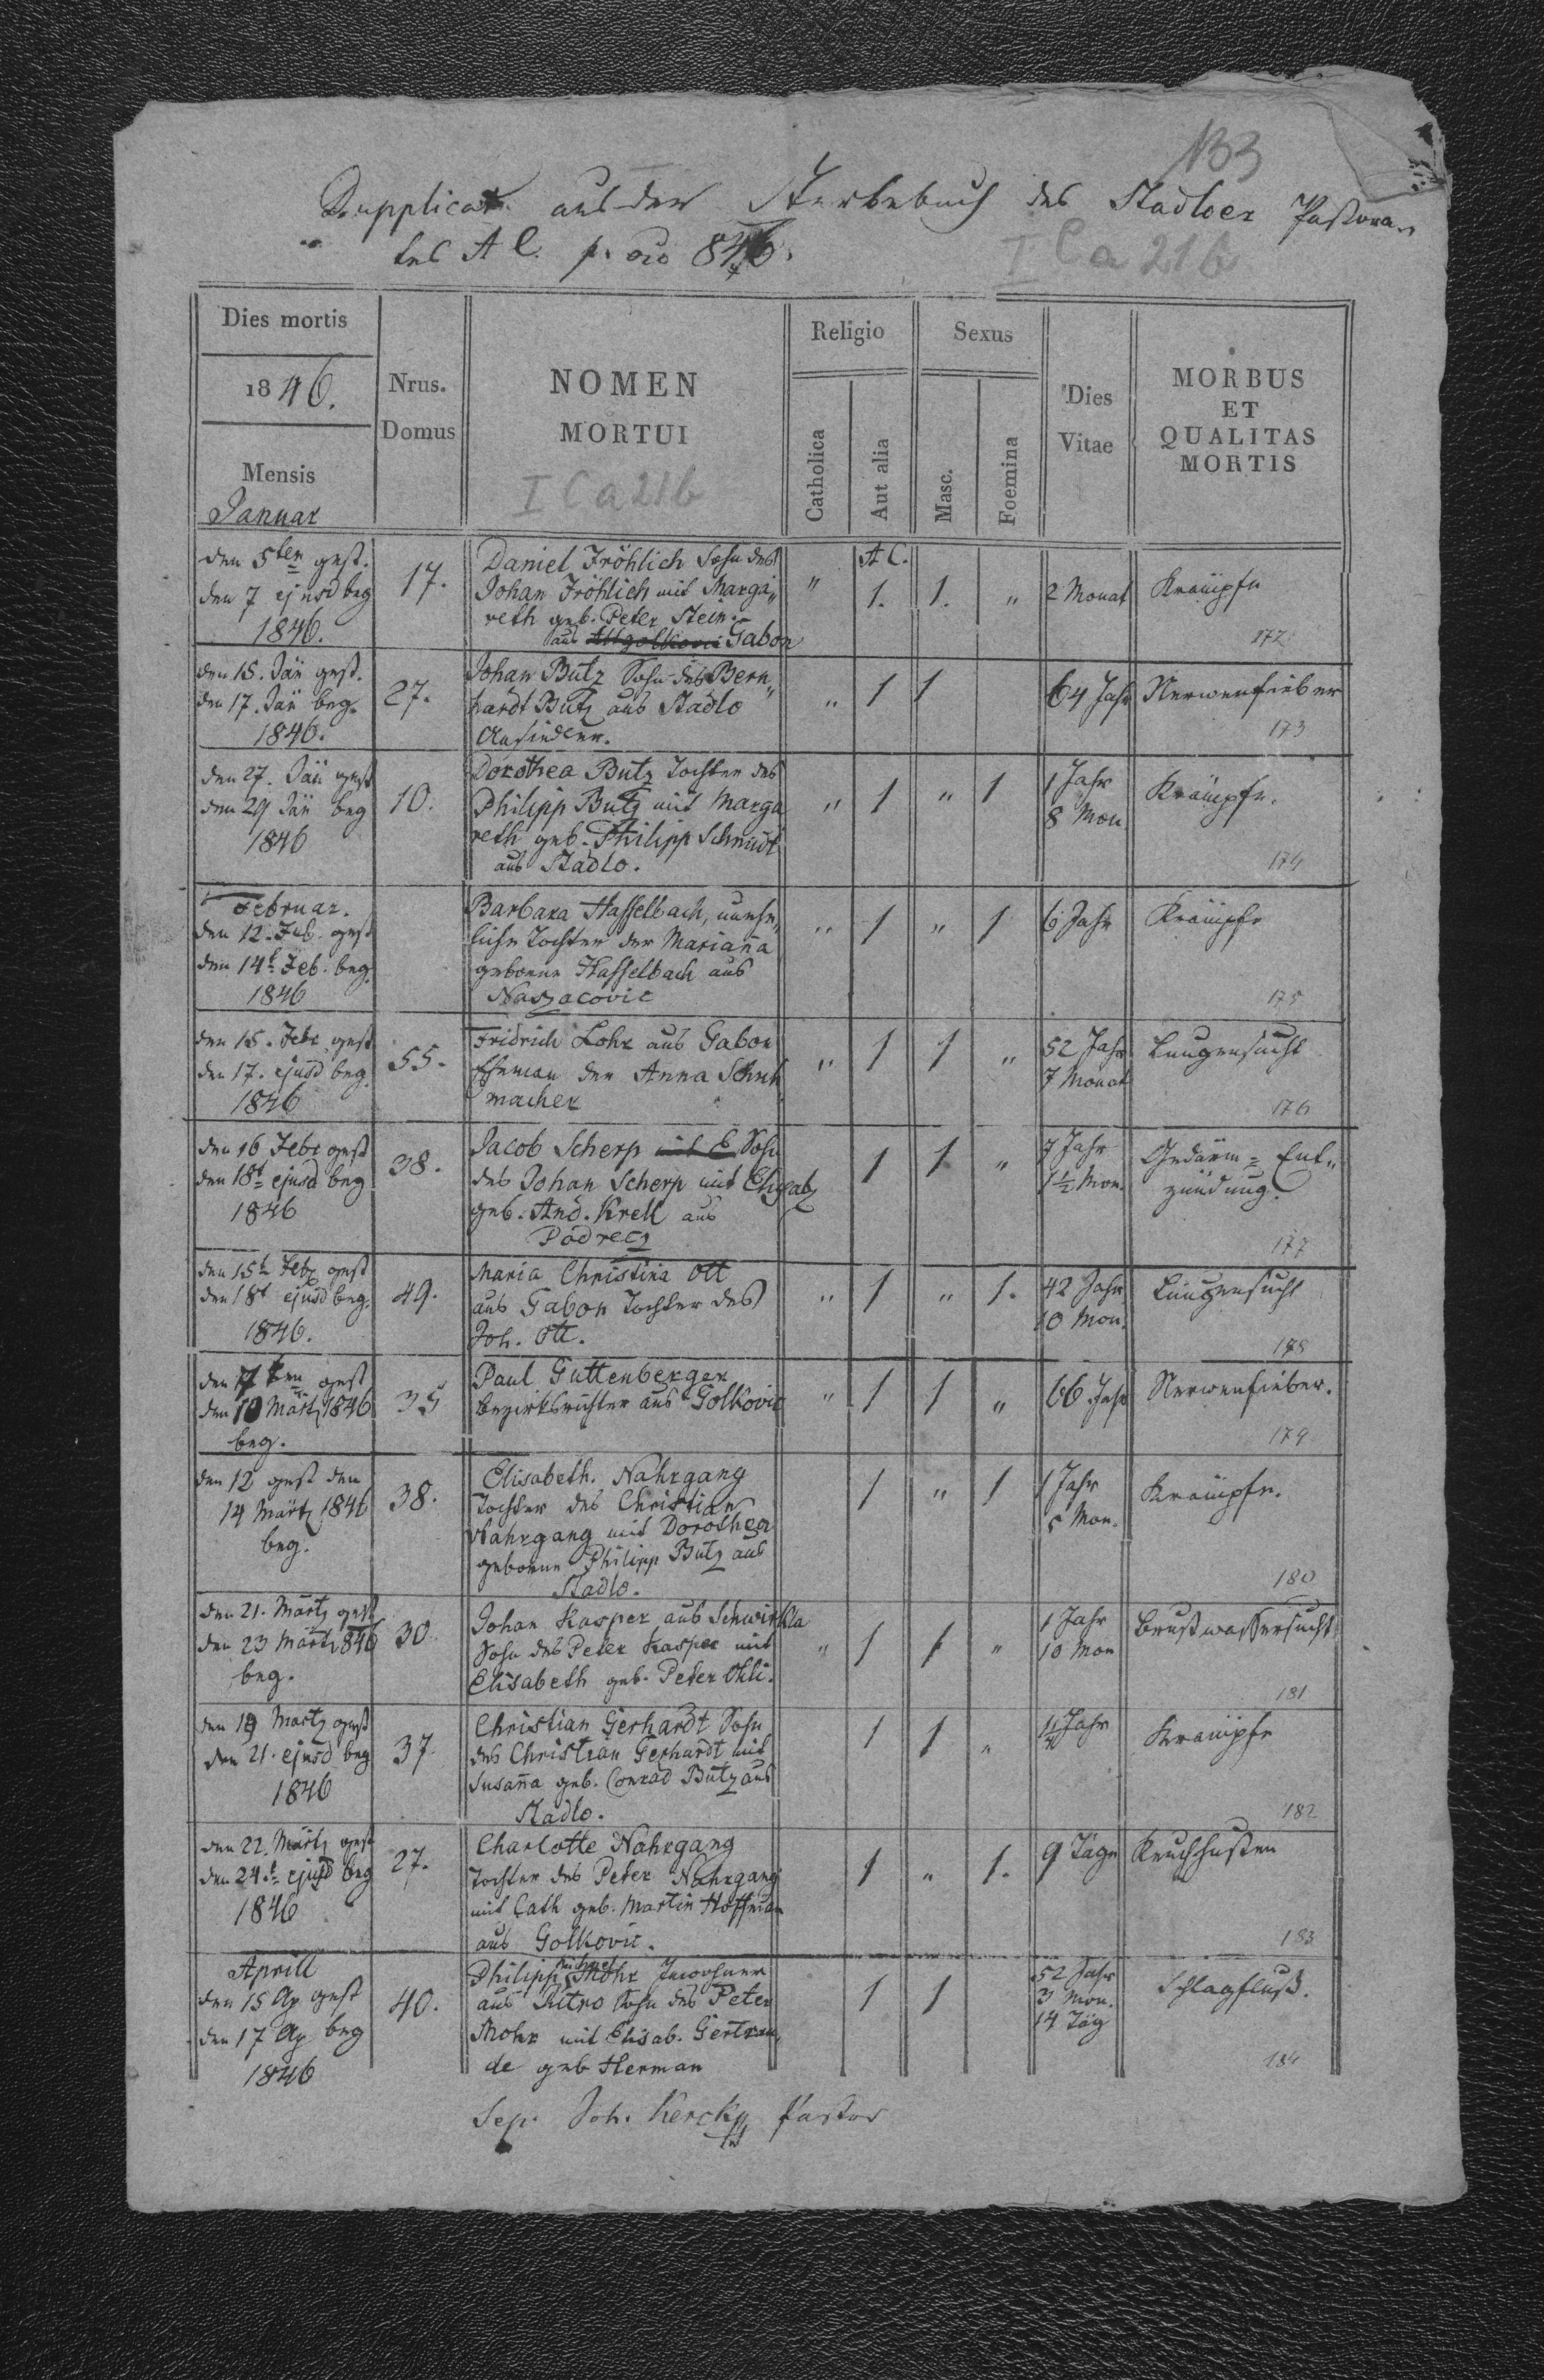 133
Dupplicat aus dem Sterbebuch des Stadloer Pastora
tes A C. p. 846.
I Ca 21b
Dies mortis
1846.
Mensis
Januar
Nrus. Domus
NOMEN MORTUI
I Ca 21b
Religio
Catholica
Aut alia
Sexus
Masc.
Foemina
Dies Vitae
MORBUS ET QUALITAS MORTIS
den 5ten gest. 17. Daniel Fröhlich Sohn des A C.
den 7 ejusd beg Johan Fröhlich mit Marga„ " 1. 1. " 2 Monat Krämpfe
1846. reth geb. Peter Stein.
aus Gabon 172
den 15. Jän gest. 27. Johan Butz Sohn des Bern„ " 1 1 64 Jahr Nerwenfieber
den 17. Jän beg. hardt Butz aus Stadlo
1846. Ansiedler. 173
den 27. Jän gest Dorothea Butz Tochter des 1 Jahr
den 29 Jän beg 10. Philipp Butz mit Marga " 1 " 1 8 Mon Krämpfe.
1846 reth geb. Philipp Schmidt
aus Stadlo. 174
Februar. Barbara Hasselbach, unehe„ " 1 " 1 6 Jahr Krämpfe
den 12. Feb. gest liche Tochter der Marianna
den 14t Feb. beg. geborne Hasselbach aus
1846 Naszacovic 175
den 15. Febr gest Fridrich Lohr aus Gabon " 1 1 " 52 Jahr Lungensucht
den 17. ejusd beg. 55. Eheman der Anna Schuh 7 Monat
1846 macher 176
den 16 Febr gest 38. Jacob Scherp Sohn 1 1 " 7 Jahr Gedärm = Ent„
den 18t ejusd beg des Johan Scherp mit Elisab 1½ Mon. zündung.
1846 geb. And. Krell aus
Podrecz 177
den 15t Febr gest Maria Christina Ott
den 18t ejusd beg. 49. aus Gabon Tochter des " 1 " 1. 42 Jahr Lungensucht
1846. Joh. Ott. 10 Mon. 178
den 7ten gest Paul Guttenberger
den 10 März 1846 35 Bezirksrichter aus Golkovic " 1 1 " 66 Jahr Nerwenfieber.
beg. 179
den 12 gest den 38. Elisabeth. Nahrgang 1 " 1 1 Jahr Krämpfe.
14 Märtz 1846 Tochter des Christian 5 Mon.
beg. Nahrgang mit Dorothea
geborne Philipp Butz aus
Stadlo. 180
den 21. Märtz gest Johan Kasper aus Schwirkla 1 Jahr Brustwassersucht
den 23 Märtz 1846 30 Sohn des Peter Kasper mit " 1 1 " 10 Mon
beg. Elisabeth geb. Peter Ohli. 181
den 19 Martz gest Christian Gerhardt Sohn 1 1 " Jahr Krämpfe
den 21. ejusd beg 37. des Christian Gerhardt mit
1846 Susanna geb. Conrad Butz aus
Stadlo. 182
den 22. Märtz gest Charlotte Nahrgang
den 24.t ejusd beg 27. Tochter des Peter Nahrgang 1 " 1. 9 Täge Keuchhusten
1846 mit Cath geb. Martin Hoffman
aus Golkovic. 183
Aprill Philipp Mohr Inwohner 52 Jahr
den 15 Ap gest 40. aus Ritro Sohn des Peter 1 1 3 Mon. Schlagfluß.
den 17 Ap beg Mohr mit Elisab. Gertrau„ 14 Täg
1846 de geb Herman 184
Sep. Joh. Pastor